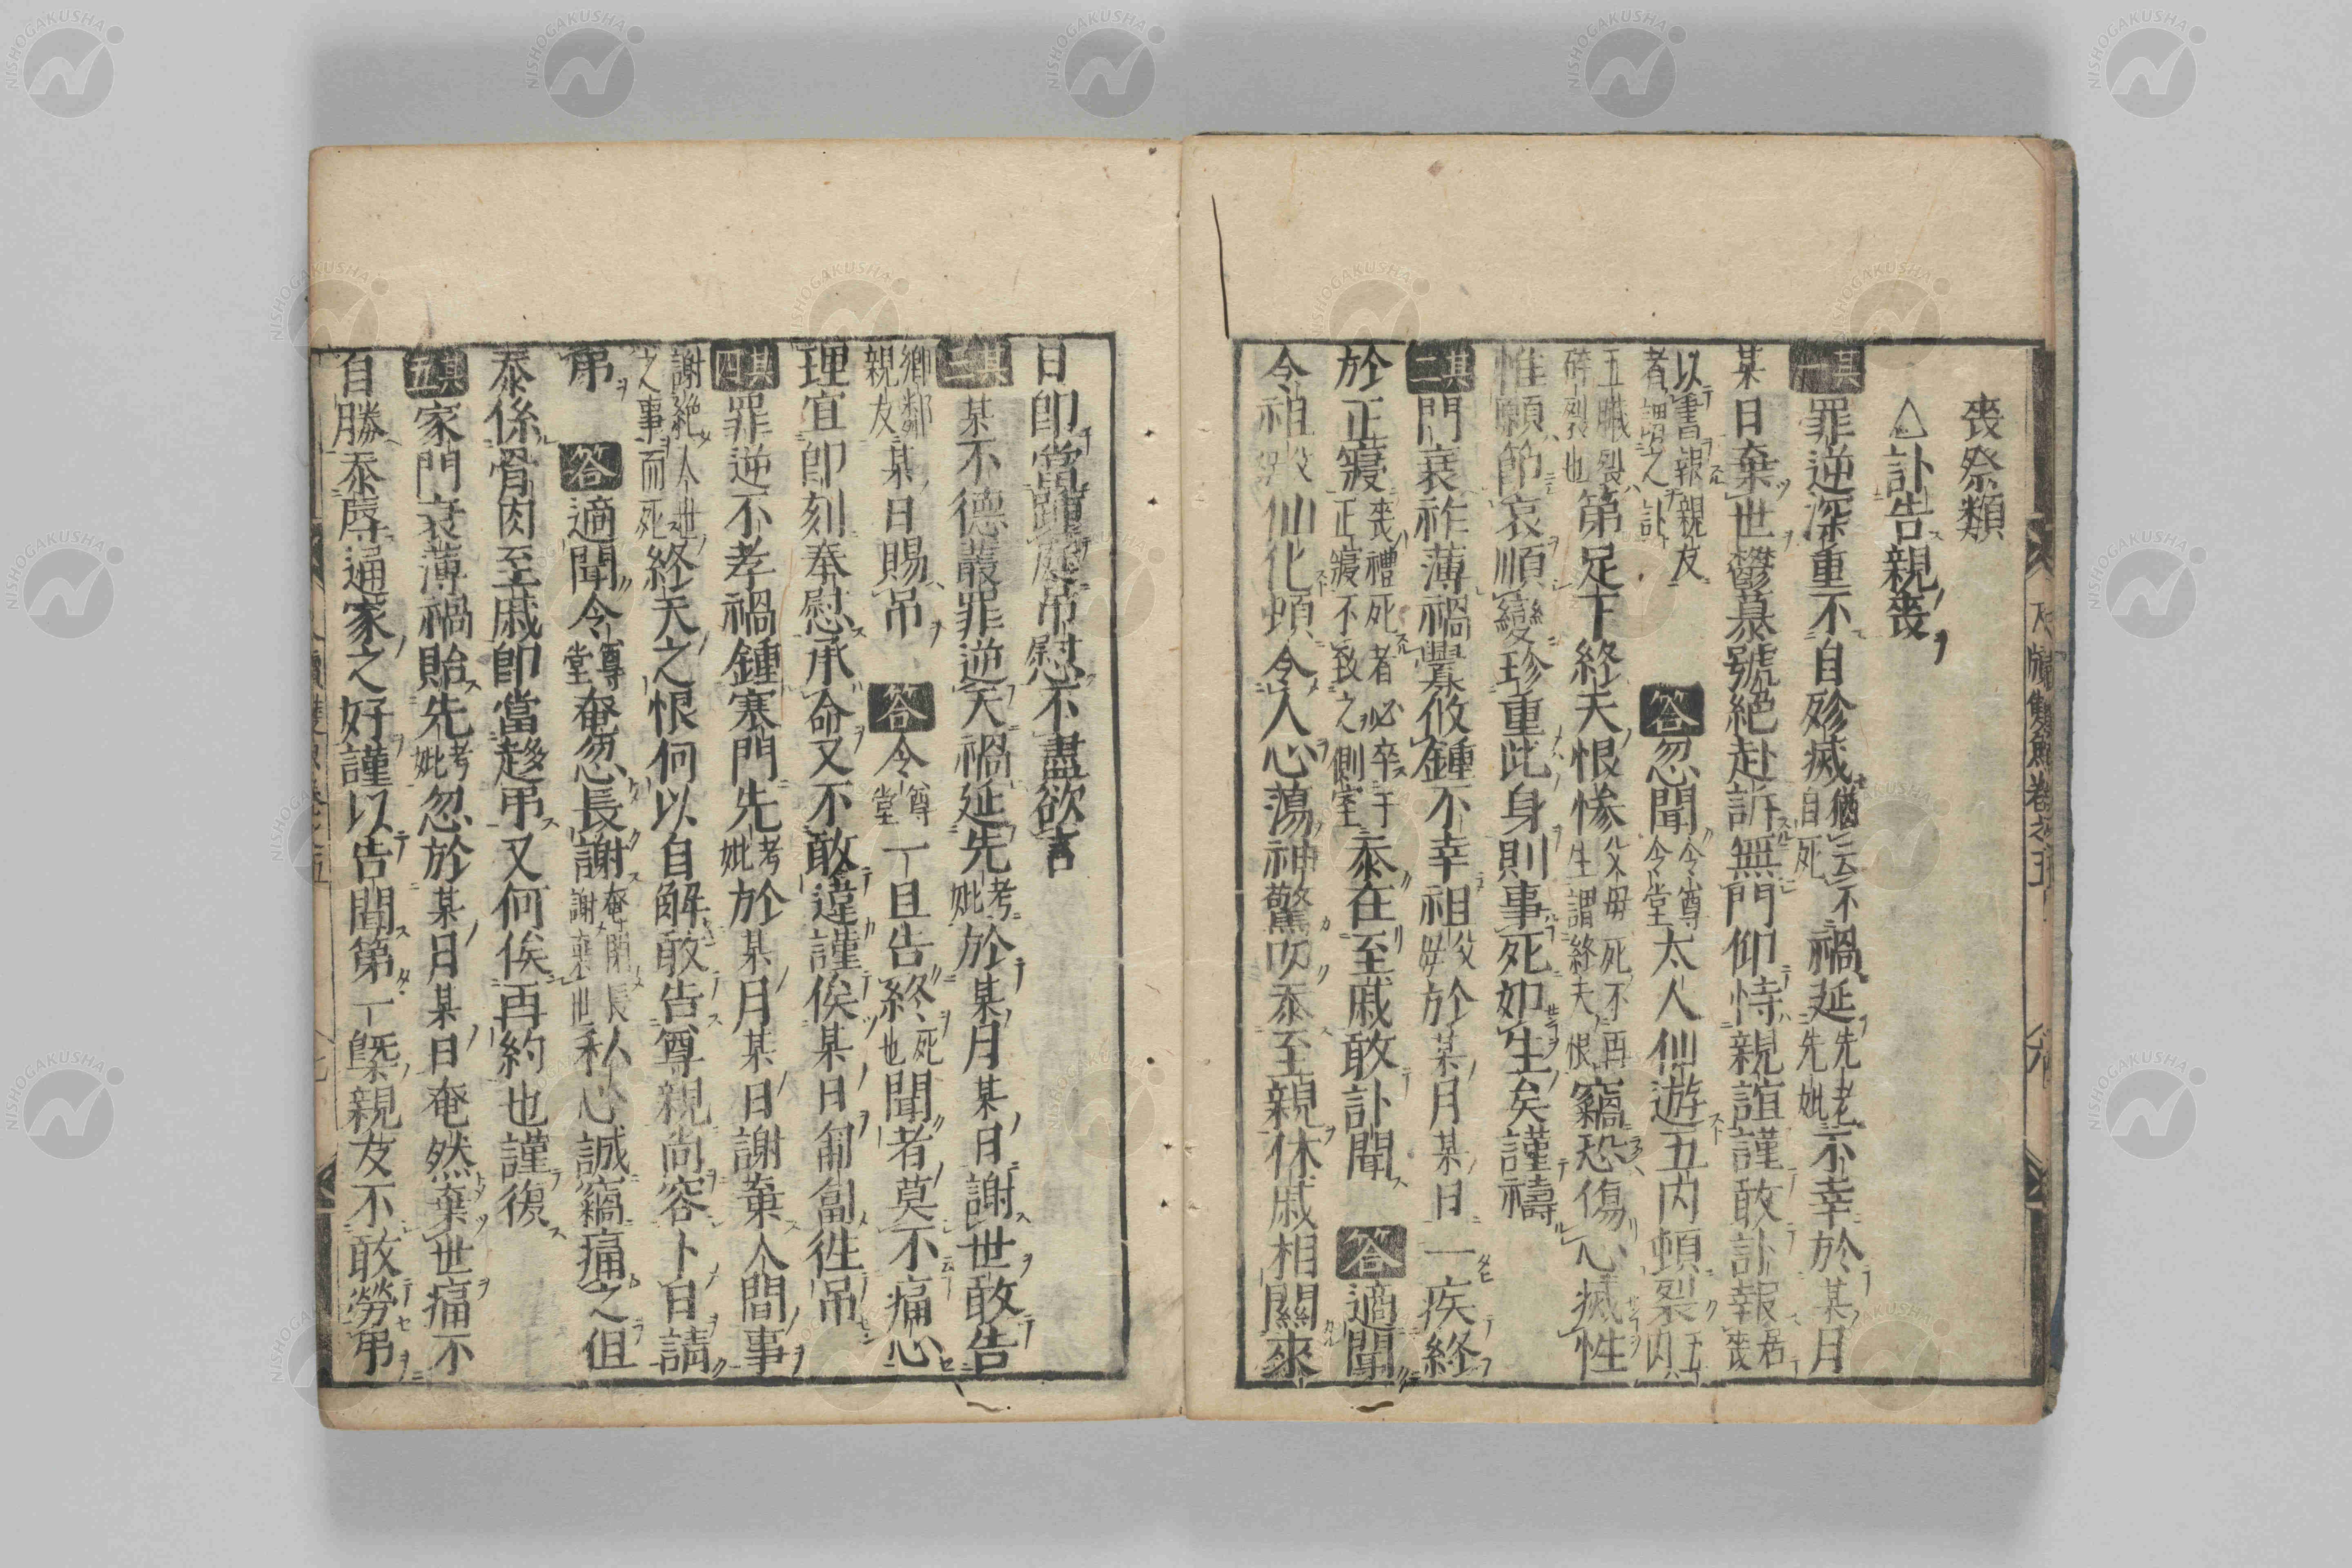 喪祭類
△訃告親喪
其一罪逆深重不自殄滅猶云不自死禍延先考先妣不幸於某月
某日棄世欝慕號絕赴訴無門仰恃親誼謹敢訃報居喪
以書報親友者謂之訃答忽聞令尊令堂太人仙遊五内頓裂五内
五臟裂碎裂也第足下終天恨惨父母死不再生謂終天恨竊恐傷心滅性
惟願節哀順變珍重此身則事死如生矣謹禱
其二門衰祚薄禍釁攸鍾不幸祖父母於某月某日一疾終
於正寢喪禮死者必卒于正寢不致之側室忝在至戚敢訃聞答適聞
令祖仙化頓令人心蕩神驚叨忝至親休戚相關來
日即當躃慰不盡欲言
其三某不德叢罪逆天禍延先考妣於某月某日謝世敢告
鄉鄰親友某日賜吊答令尊堂一旦告終死也聞者莫不痛心
理宜即刻奉慰承命又不敢違謹俟某日匍匐徃吊
其四罪逆不孝禍鍾寒門先考妣於某月某日謝棄人間事
謝絕人世之事而死終天之恨何以自解敢告尊親尚容卜日請
吊答適聞令尊堂奄忽長謝奄閉長謝棄世私心誠竊痛之但
忝係骨肉至戚即當趍吊又何俟再約也謹復
其五家門衰薄禍貽先考妣忽於某月某日奄然棄世痛不
自勝忝辱通家之好謹以告聞第一槩親友不敢勞吊
NISHOGAKUSHA